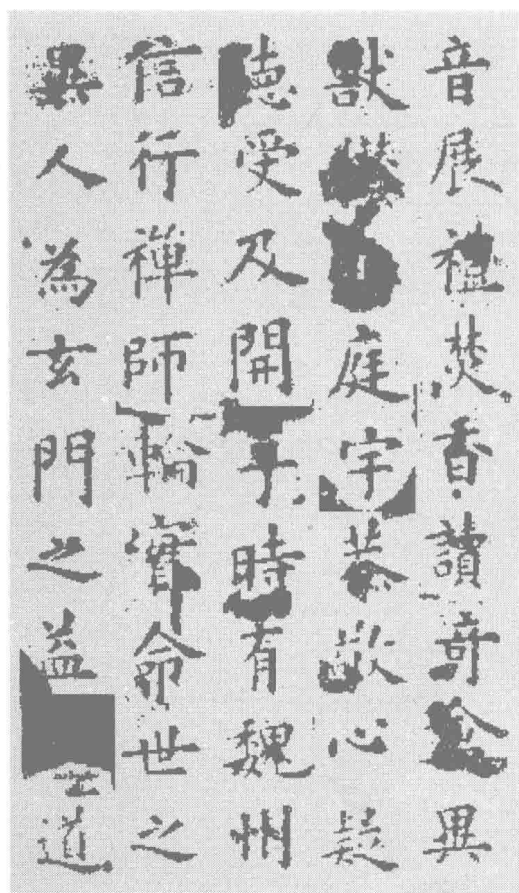 音展禮焚香讀奇禽異
獸庭宇恭敬心疑
聴受及開時有魏州
信行禪師輪實命世之
異人為玄門之益道